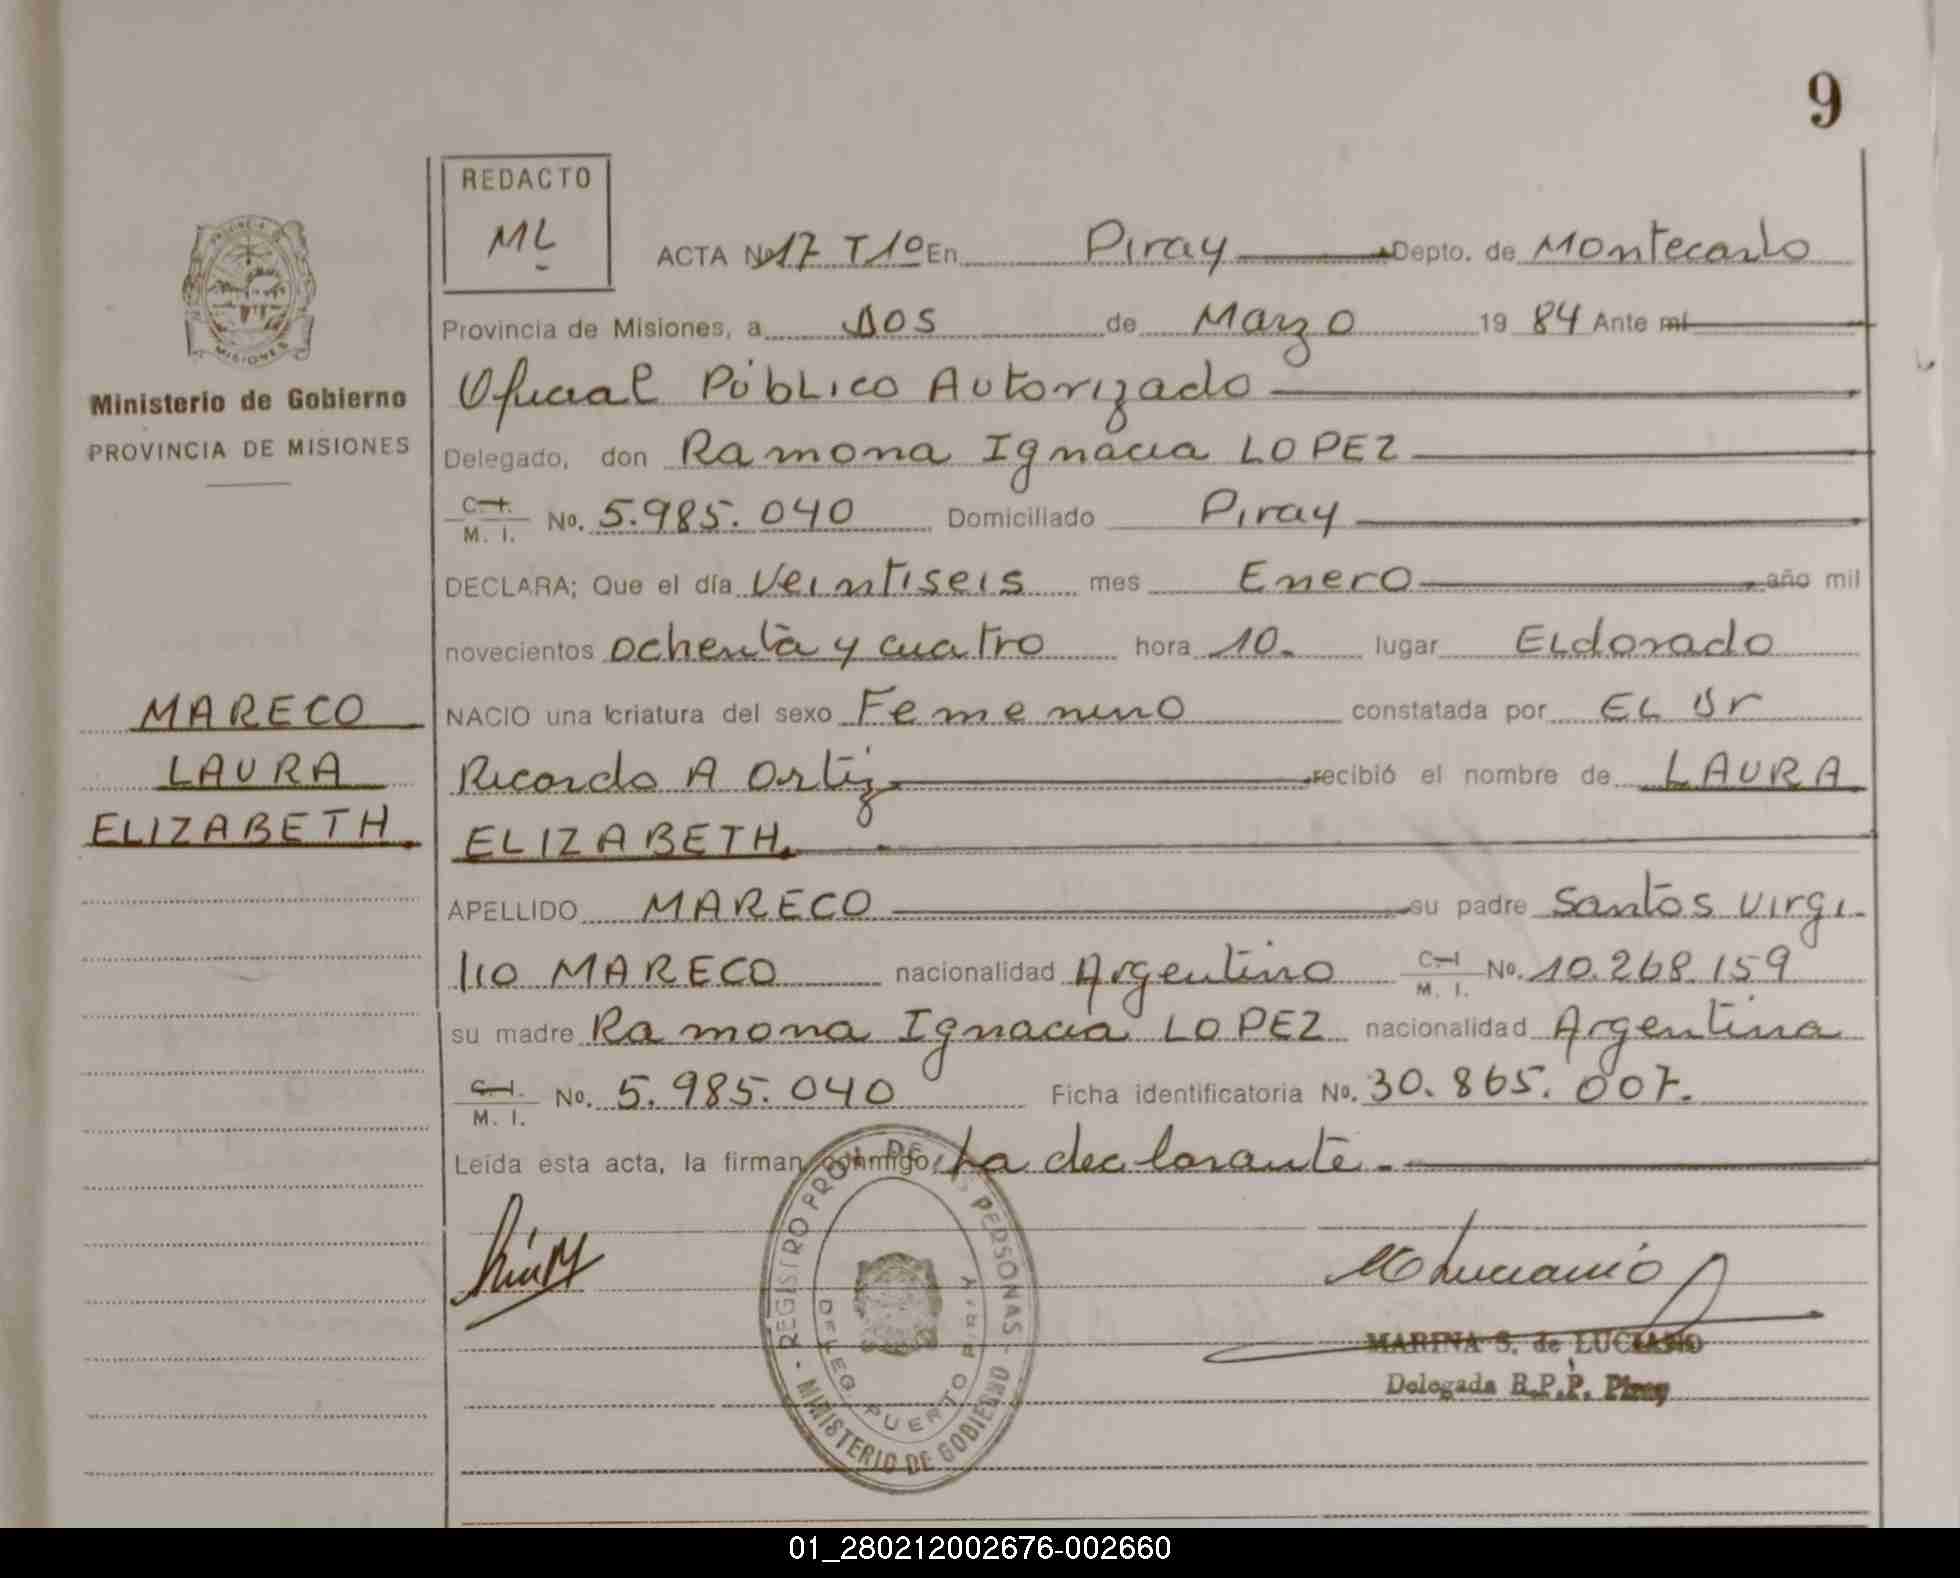 9
REDACTO
ML
ACTA No 17 T1º En Piray Depto. de Montecarlo
Provincia de Misiones, a dos de Marzo 19 84 Ante mí
Oficial Público Autorizado
Delegado, don Ramona Ignacia LOPEZ
C. I. M. I. No. 5.985.040 Domiciliado Piray
DECLARA; Que el día Veintiseis mes Enero año mil
novecientos ochenta y cuatro hora 10. lugar Eldorado
NACIO una criatura del sexo Femenino constatada por EL Dr
Ricardo A Ortiz recibió el nombre de LAURA
ELIZABETH.
APELLIDO MARECO su padre Santos Virgi-
lio MARECO nacionalidad Argentino C. I. M. I. No. 10.268.159
su madre Ramona Ignacia LOPEZ nacionalidad Argentina
C. I. M. I. No. 5.985.040 Ficha identificatoria No. 30.865.007.
Leída esta acta, la firman conmigo, La declarante.-
PROVINCIA DE
MISIONES
Ministerio de Gobierno
PROVINCIA DE MISIONES
MARECO
LAURA
ELIZABETH.
REGISTRO PROV. DE LAS PERSONAS
- MINISTERIO DE GOBIERNO -
DELEG. PUERTO PIRAY
MARINA S. de LUCIANO
Delegada R.P.P. Piray
01_280212002676-002660